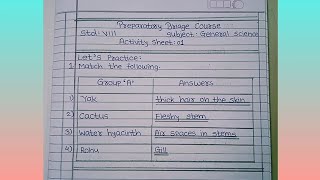 Preparatory Briage Course
Std: VIII Subject: General science
Activity Sheet: 01
Let's Practice:
1 Match the following.
Group 'A' Answers
1) Yak thick hair on the skin
2) Cactus Fleshy stem
3) Water hyacinth Air spaces in stems
4) Rohu Gill